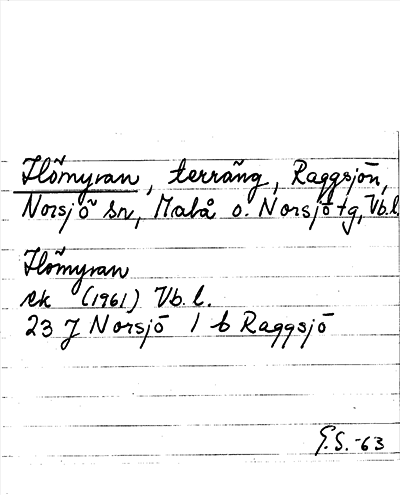 Flömyran, terräng, Raggsjön,
Norsjö sn, Malå o. Norsjö tg, Vb.l.
Flömyran
ek (1961) Vb. l.
23 J Norsjö 1 b Raggsjö
G.S. -63